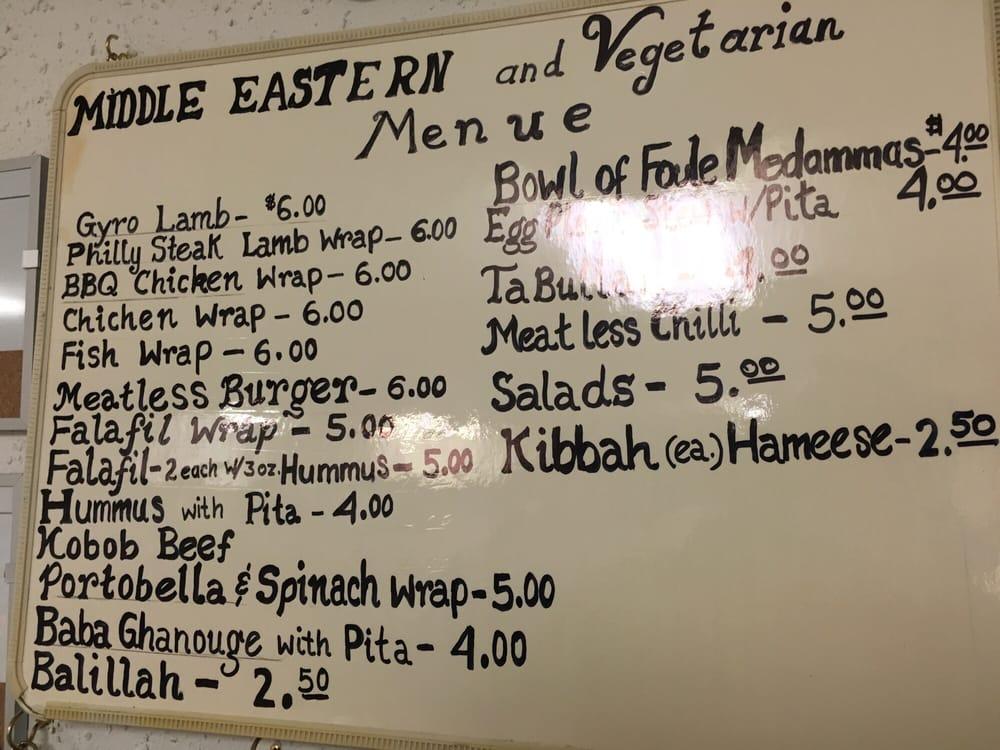 MIDDLE EASTERN and Vegetarian
Menue
Gyro Lamb- $6.00
Philly Steak Lamb Wrap- 6.00
BBQ Chicken Wrap- 6.00
Chichen Wrap - 6.00
Fish Wrap - 6.00
Meatless Burger- 6.00
Falafil Wrap - 5.00
Falafil-2 each W/3 oz. Hummus- 5.00
Hummus with Pita - 4.00
Kobob Beef
Portobella & Spinach Wrap-5.00
Baba Ghanouge with Pita- 4.00
Balillah - 2.50
Bowl of Foule Medammas-$4.00
Egg W/Pita 4.00
.00
Meatless Chilli - 5.00
Salads- 5.00
Kibbah (ea.) Hameese-2.50